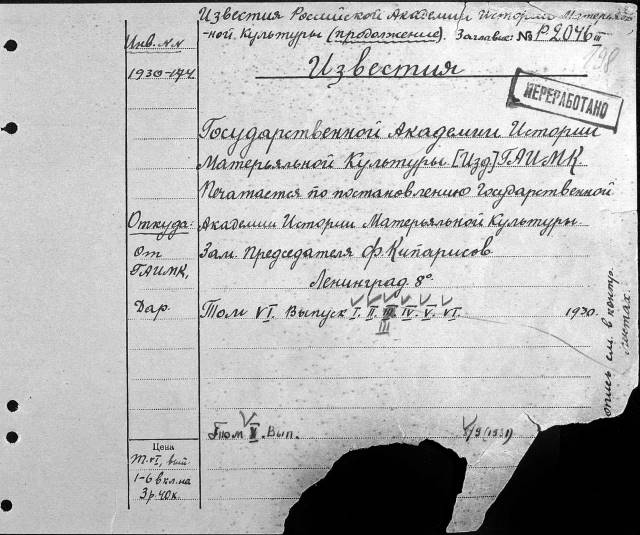 Известия Российской Академии Истории Матерьяль-
-ной Культуры (продолжение). Заглавие: № Р 2046 III
198
Известия
ПЕРЕРАБОТАНО
Инв. №№
1930-174
Государственной Академии Истории
Матерьяльной Культуры. [Изд] ГАИМК.
Печатается по постановлению Государственной
Откуда:
Академии Истории Матерьяльной Культуры
От
Зам. Председателя Ф. Кипарисов
ГАИМК,
Ленинград 8°
Дар.
Том VI. Выпуск I. II. III. IV. V. VI. 1930.
III
опись см. в контр.
листах.
Том Вып. 9 (1931)
Цена
т. VI, вып
1-6 вкл. на
3 р. 40 к.